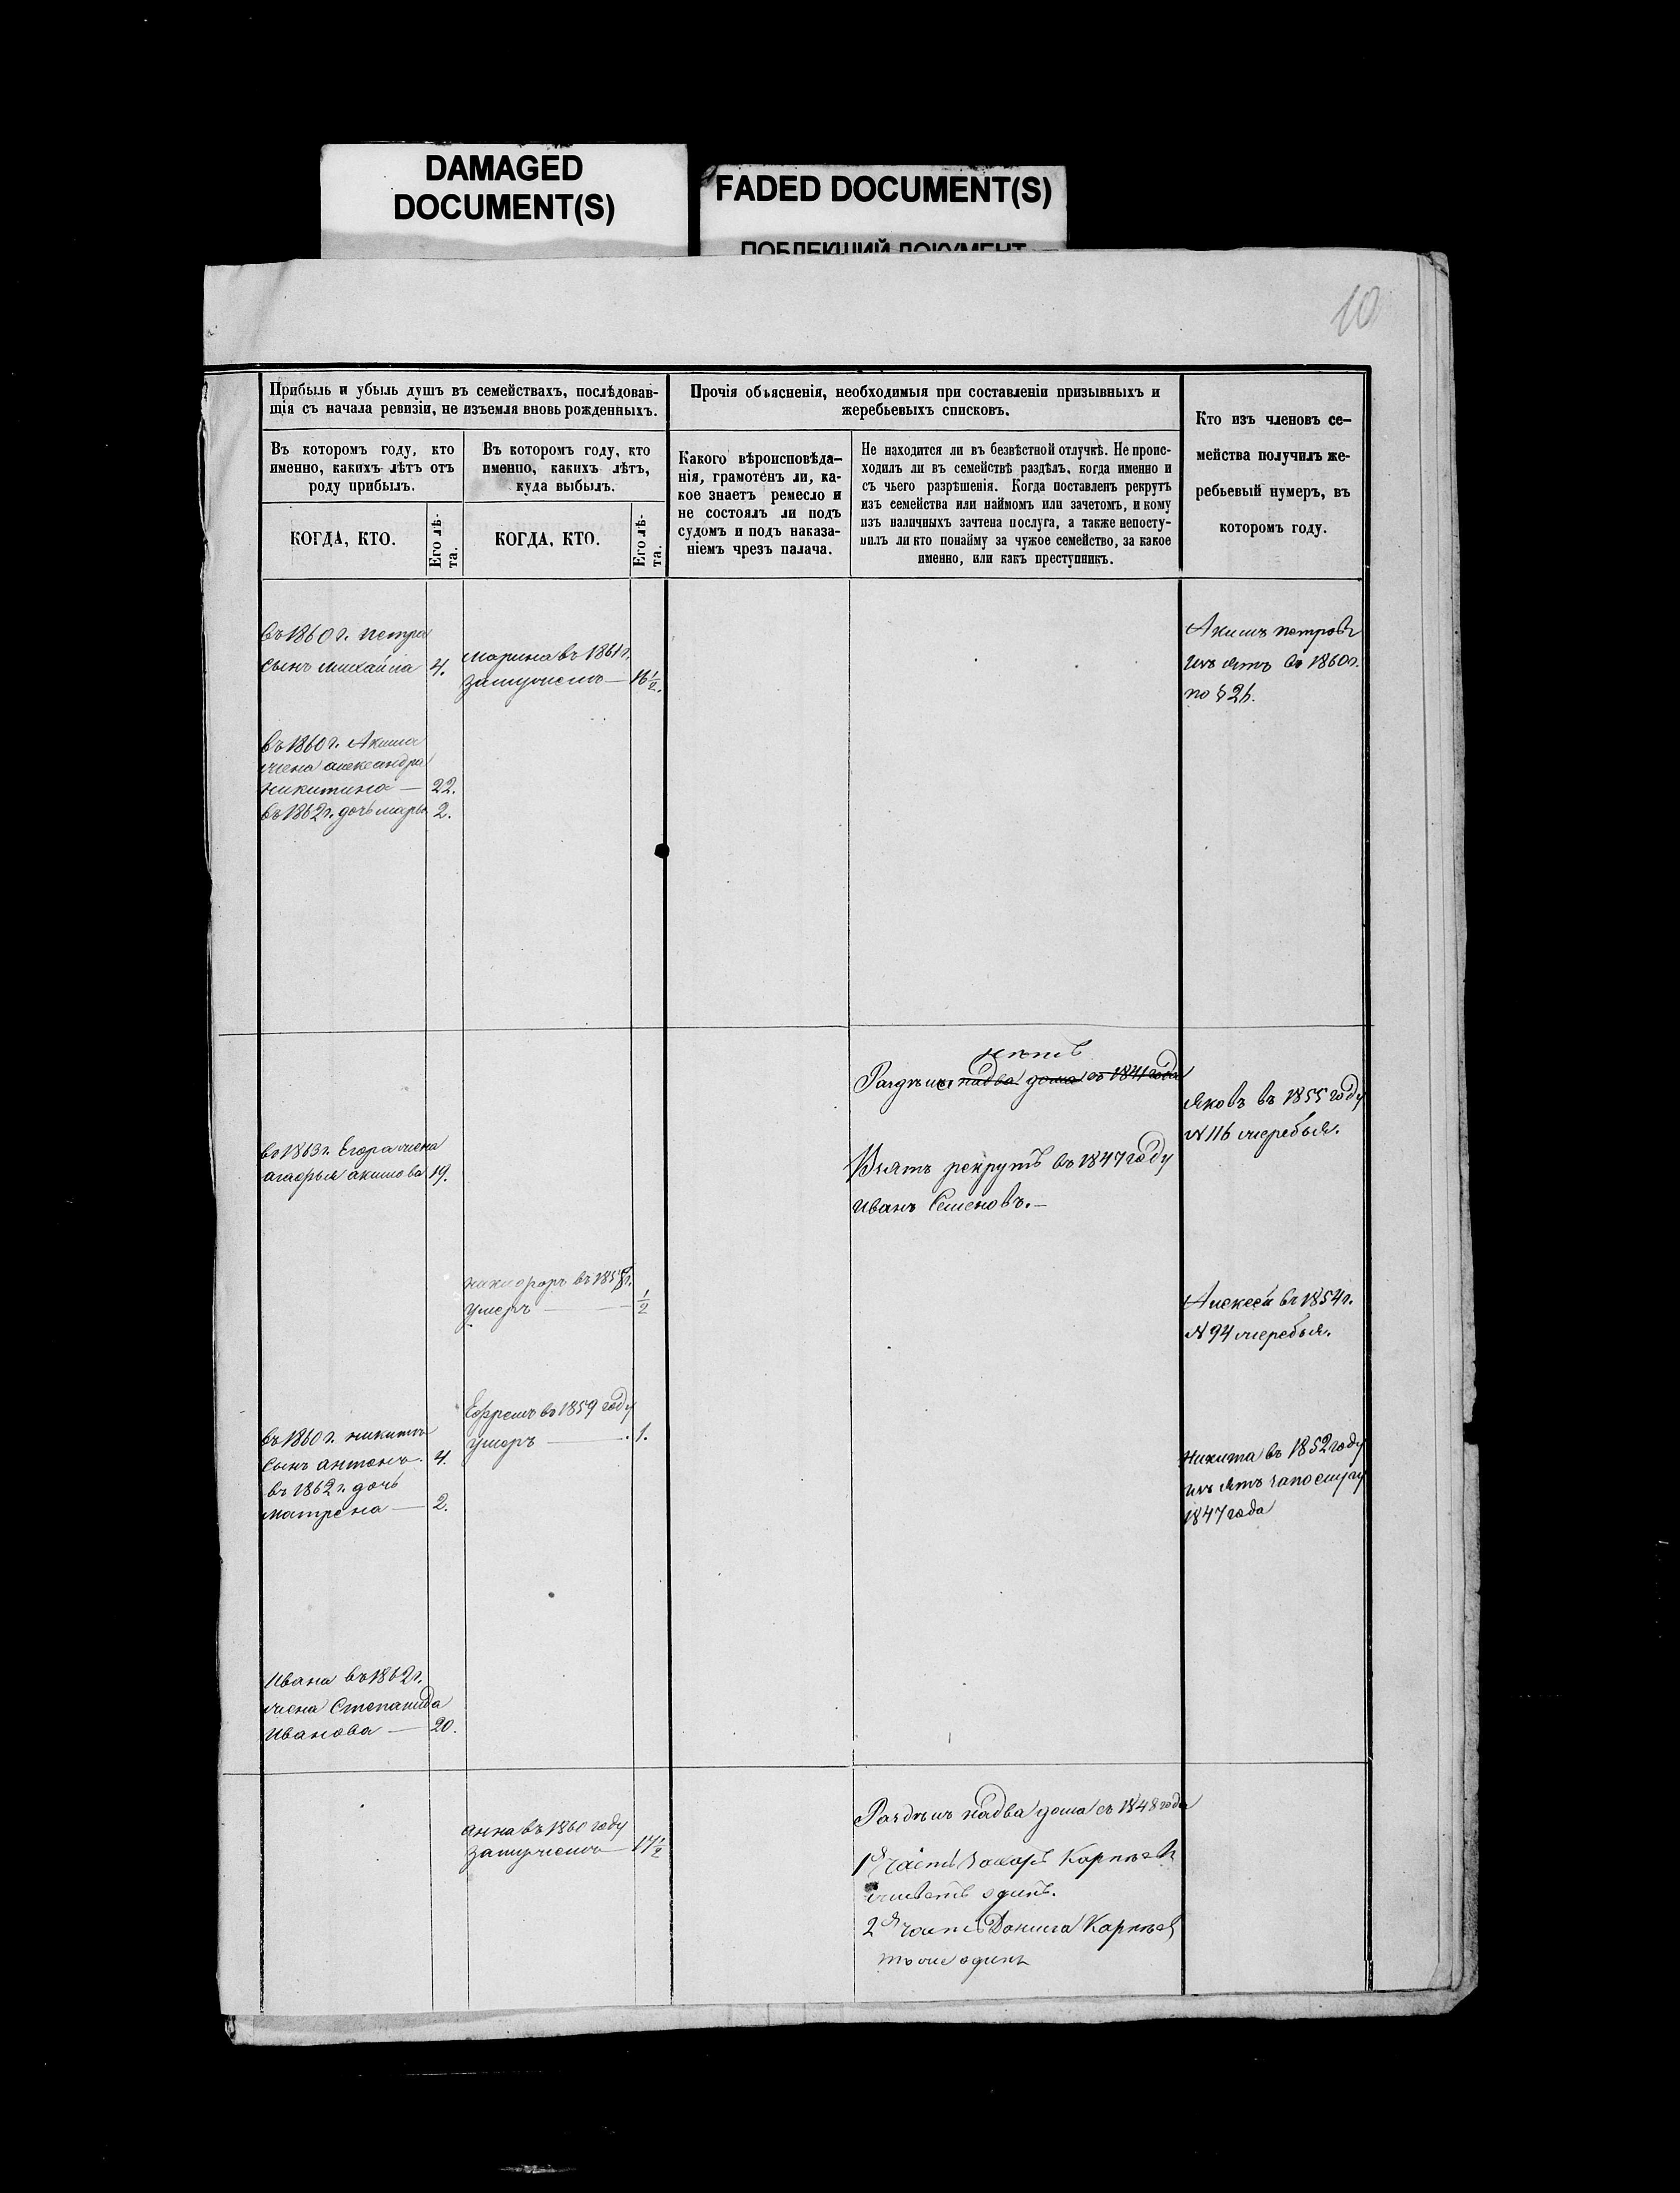 DAMAGED
DOCUMENT(S)
FADED DOCUMENT(S)
ПОБЛЕКШИЙ ДОКУМЕНТ
10
Прибыль и убыль душъ въ семействахъ, послѣдовав-
щія съ начала ревизіи, не изъемля вновь рожденныхъ.
Въ которомъ году, кто
именно, какихъ лѣтъ отъ
роду прибылъ.
Въ которомъ году, кто
именно, какихъ лѣтъ,
куда выбылъ.
КОГДА, КТО.
Его лѣ-
та.
КОГДА, КТО.
Его лѣ-
та.
Прочія объясненія, необходимыя при составленіи призывныхъ и
жеребьевыхъ списковъ.
Какого вѣроисповѣда-
нія, грамотенъ ли, ка-
кое знаетъ ремесло и
не состоялъ ли подъ
судомъ и подъ наказа-
ніемъ чрезъ палача.
Не находится ли въ безвѣстной отлучкѣ. Не проис-
ходилъ ли въ семействѣ раздѣлъ, когда именно и
съ чьего разрѣшенія. Когда поставленъ рекрутъ
изъ семейства или наймомъ или зачетомъ, и кому
изъ наличныхъ зачтена послуга, а также непосту-
пилъ ли кто понайму за чужое семейство, за какое
именно, или какъ преступникъ.
Кто изъ членовъ се-
мейства получилъ же-
ребьевый нумеръ, въ
которомъ году.
въ 1860 г. петра
сынъ михайла 4.
марина въ 1861 г.
замужемъ — 16 1/2.
Акимъ петровъ
изъятъ въ 1860 г.
по §
въ 1860 г. Акима
жена александра
никитина — 22.
въ 1862 г. дочь марья 2.
нѣтъ
Раздѣла надва дома съ 1841 года
Яковъ въ 1855 году
№ 116 жеребья.
въ 1863 г. Егора жена
агафья акимова 19.
Взятъ рекрутъ въ 1847 году
Иванъ Семеновъ.—
никифоръ въ 1858 г.
умеръ — 1/2
Алексей въ 1854 г.
№ 94 жеребья.
Ефремъ въ 1859 году
умеръ — 1.
въ 1860 г. никиты
сынъ антонъ. 4.
въ 1862 г. дочь
матрена — 2.
Никита въ 1852 году
изъятъ запослугу
1847 года
Ивана въ 1862 г.
жена Степанида
Иванова — 20.
анна въ 1860 году
замужемъ — 17 1/2
Раздѣлъ надва дома съ 1848 года
1я часть Захаръ Карпѣевъ
живетъ одинъ.
2я часть Данила Карпѣевъ
тоже одинъ